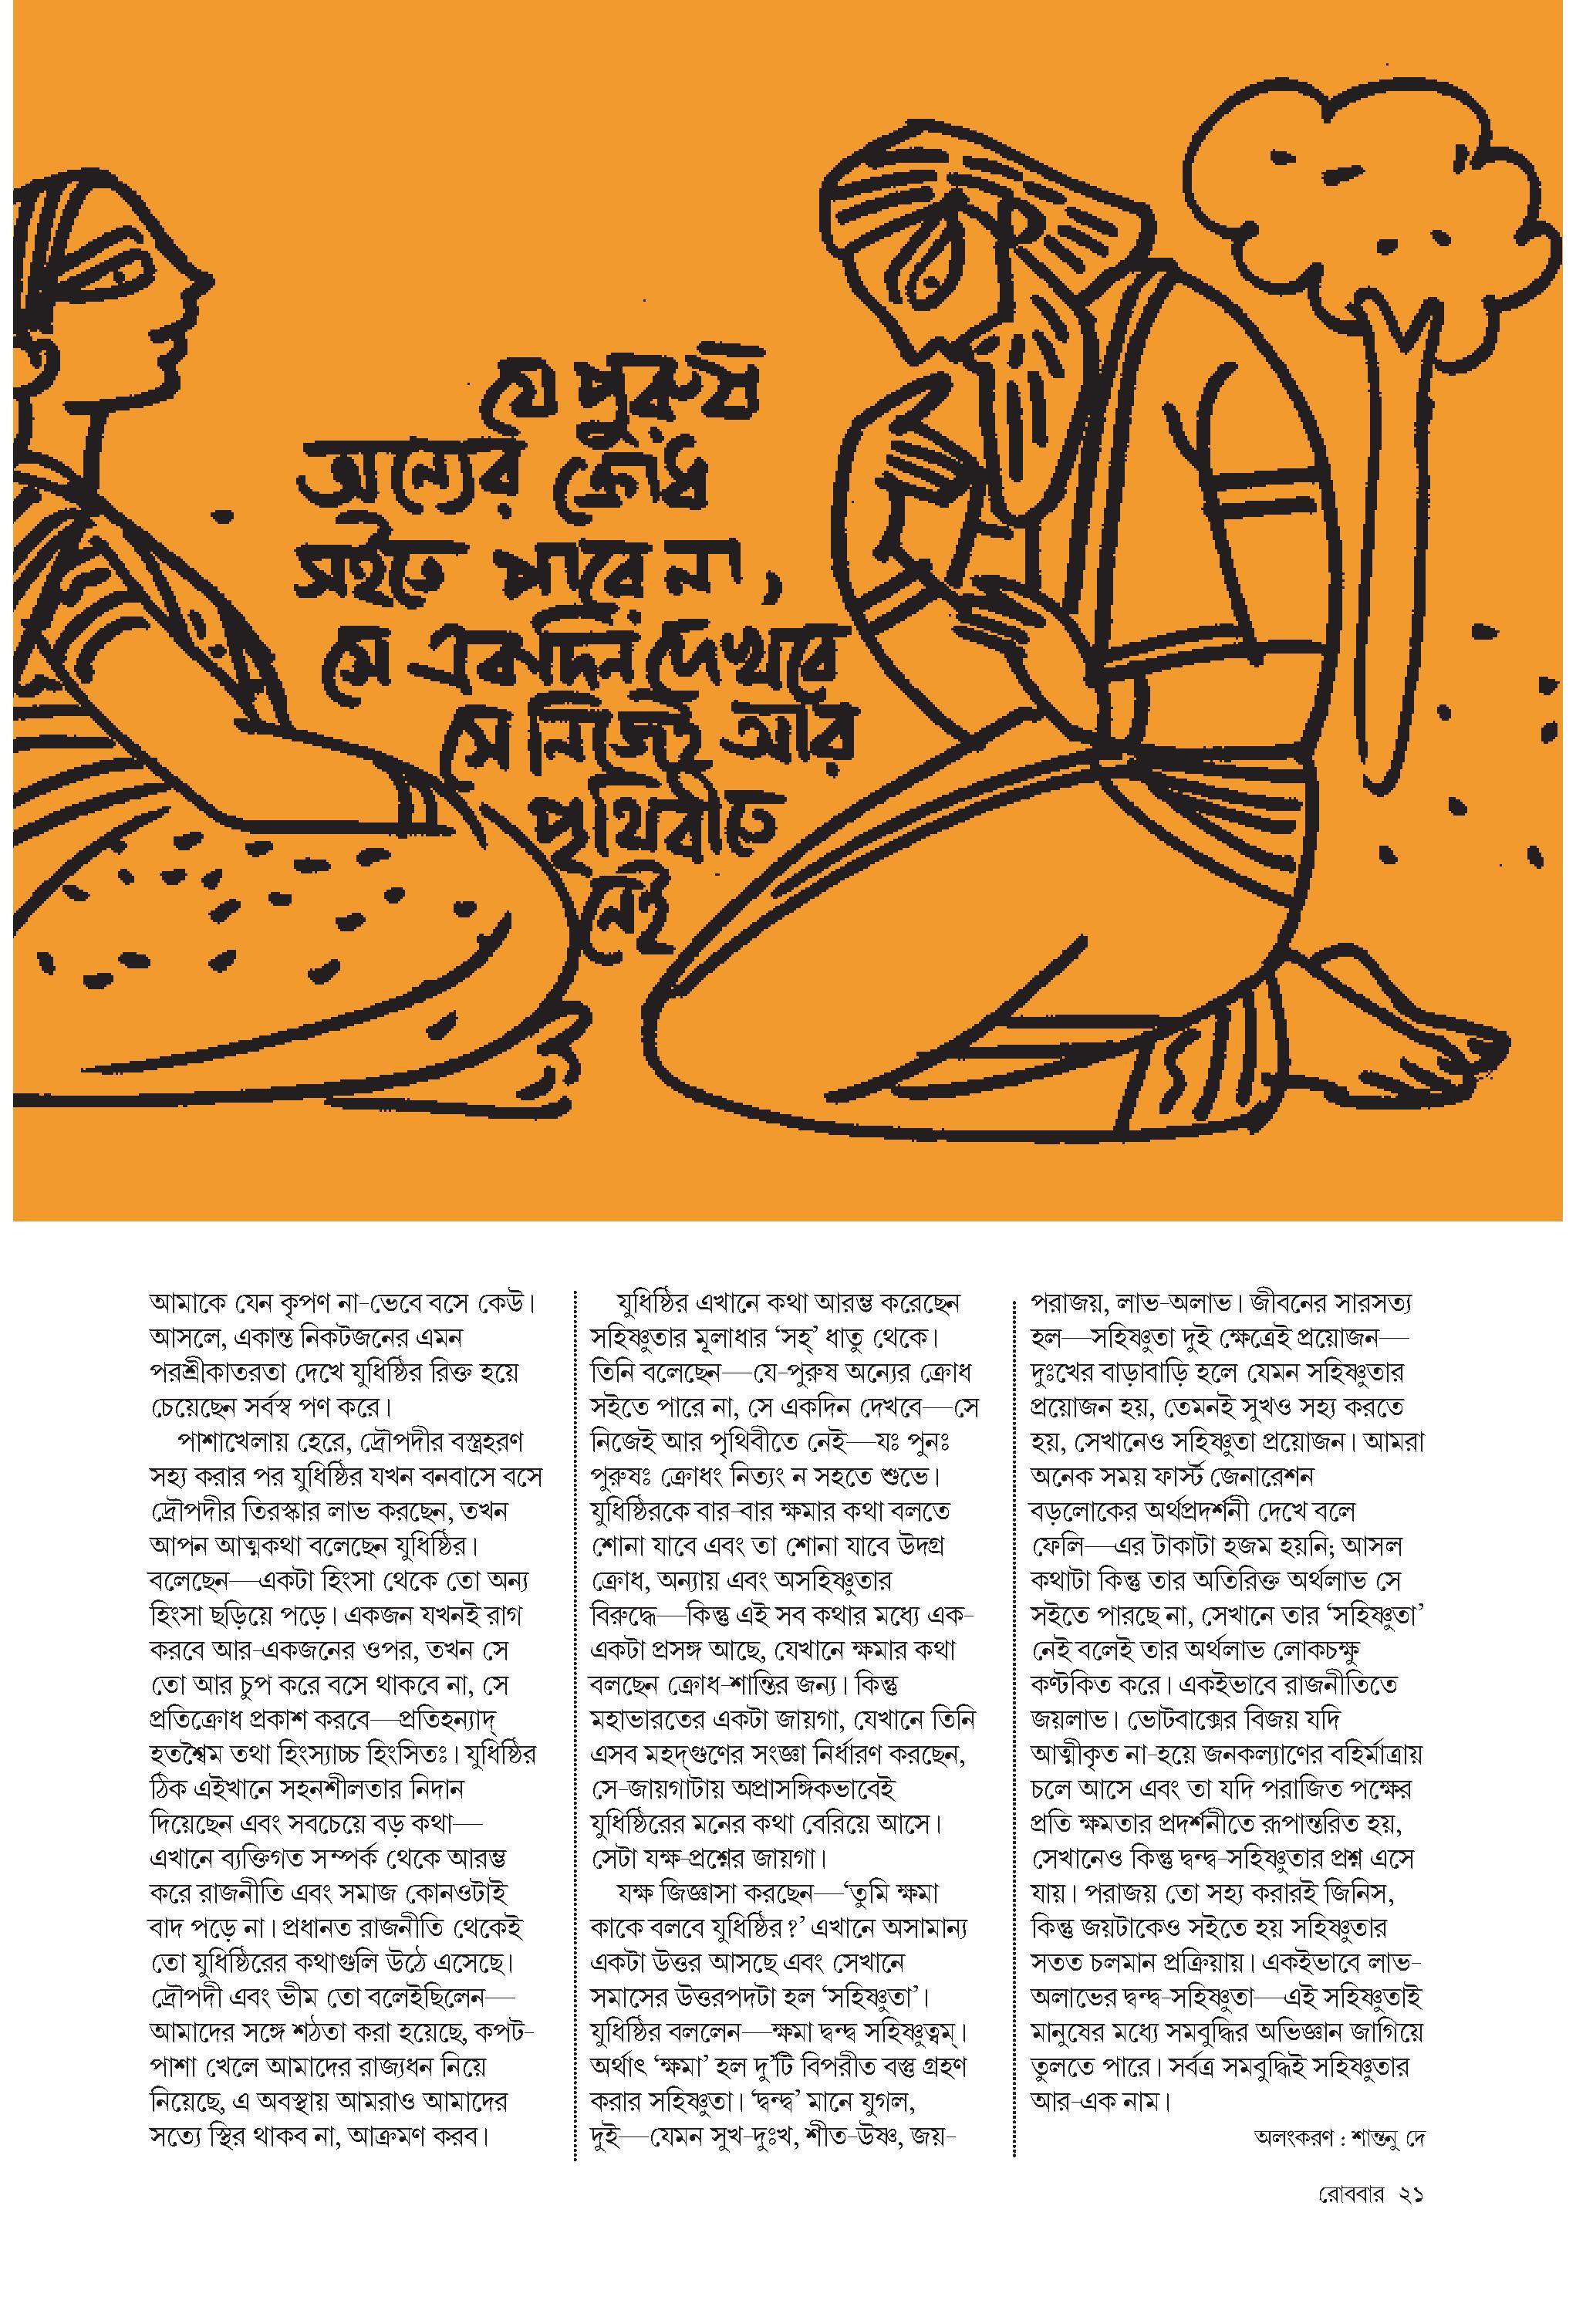 যে পুরুষ
অন্যের ক্রোধ
সইতে পারে না,
সে একদিন দেখবে
সে নিজেই আর
পৃথিবীতে
নেই
আমাকে যেন কৃপণ না-ভেবে বসে কেউ।
আসলে, একান্ত নিকটজনের এমন
পরশ্রীকাতরতা দেখে যুধিষ্ঠির রিক্ত হয়ে
চেয়েছেন সর্বস্ব পণ করে।
পাশাখেলায় হেরে, দ্রৌপদীর বস্ত্রহরণ
সহ্য করার পর যুধিষ্ঠির যখন বনবাসে বসে
দ্রৌপদীর তিরস্কার লাভ করছেন, তখন
আপন আত্মকথা বলেছেন যুধিষ্ঠির।
বলেছেন—একটা হিংসা থেকে তো অন্য
হিংসা ছড়িয়ে পড়ে। একজন যখনই রাগ
করবে আর-একজনের ওপর, তখন সে
তো আর চুপ করে বসে থাকবে না, সে
প্রতিক্রোধ প্রকাশ করবে—প্রতিহন্যাদ্
হতশ্চৈম তথা হিংস্যাচ্চ হিংসিতঃ। যুধিষ্ঠির
ঠিক এইখানে সহনশীলতার নিদান
দিয়েছেন এবং সবচেয়ে বড় কথা—
এখানে ব্যক্তিগত সম্পর্ক থেকে আরম্ভ
করে রাজনীতি এবং সমাজ কোনওটাই
বাদ পড়ে না। প্রধানত রাজনীতি থেকেই
তো যুধিষ্ঠিরের কথাগুলি উঠে এসেছে।
দ্রৌপদী এবং ভীম তো বলেইছিলেন—
আমাদের সঙ্গে শঠতা করা হয়েছে, কপট-
পাশা খেলে আমাদের রাজ্যধন নিয়ে
নিয়েছে, এ অবস্থায় আমরাও আমাদের
সত্যে স্থির থাকব না, আক্রমণ করব।
যুধিষ্ঠির এখানে কথা আরম্ভ করেছেন
সহিষ্ণুতার মূলাধার ‘সহ্’ ধাতু থেকে।
তিনি বলেছেন—যে-পুরুষ অন্যের ক্রোধ
সইতে পারে না, সে একদিন দেখবে—সে
নিজেই আর পৃথিবীতে নেই—যঃ পুনঃ
পুরুষঃ ক্রোধং নিত্যং ন সহতে শুভে।
যুধিষ্ঠিরকে বার-বার ক্ষমার কথা বলতে
শোনা যাবে এবং তা শোনা যাবে উদগ্র
ক্রোধ, অন্যায় এবং অসহিষ্ণুতার
বিরুদ্ধে—কিন্তু এই সব কথার মধ্যে এক-
একটা প্রসঙ্গ আছে, যেখানে ক্ষমার কথা
বলছেন ক্রোধ-শান্তির জন্য। কিন্তু
মহাভারতের একটা জায়গা, যেখানে তিনি
এসব মহদ্‌গুণের সংজ্ঞা নির্ধারণ করছেন,
সে-জায়গাটায় অপ্রাসঙ্গিকভাবেই
যুধিষ্ঠিরের মনের কথা বেরিয়ে আসে।
সেটা যক্ষ-প্রশ্নের জায়গা।
যক্ষ জিজ্ঞাসা করছেন—‘তুমি ক্ষমা
কাকে বলবে যুধিষ্ঠির?’ এখানে অসামান্য
একটা উত্তর আসছে এবং সেখানে
সমাসের উত্তরপদটা হল ‘সহিষ্ণুতা’।
যুধিষ্ঠির বললেন—ক্ষমা দ্বন্দ্ব সহিষ্ণুত্বম্।
অর্থাৎ ‘ক্ষমা’ হল দু’টি বিপরীত বস্তু গ্রহণ
করার সহিষ্ণুতা। ‘দ্বন্দ্ব’ মানে যুগল,
দুই—যেমন সুখ-দুঃখ, শীত-উষ্ণ, জয়-
পরাজয়, লাভ-অলাভ। জীবনের সারসত্য
হল—সহিষ্ণুতা দুই ক্ষেত্রেই প্রয়োজন—
দুঃখের বাড়াবাড়ি হলে যেমন সহিষ্ণুতার
প্রয়োজন হয়, তেমনই সুখও সহ্য করতে
হয়, সেখানেও সহিষ্ণুতা প্রয়োজন। আমরা
অনেক সময় ফার্স্ট জেনারেশন
বড়লোকের অর্থপ্রদর্শনী দেখে বলে
ফেলি—এর টাকাটা হজম হয়নি; আসল
কথাটা কিন্তু তার অতিরিক্ত অর্থলাভ সে
সইতে পারছে না, সেখানে তার ‘সহিষ্ণুতা’
নেই বলেই তার অর্থলাভ লোকচক্ষু
কণ্টকিত করে। একইভাবে রাজনীতিতে
জয়লাভ। ভোটবাক্সের বিজয় যদি
আত্মীকৃত না-হয়ে জনকল্যাণের বহির্মাত্রায়
চলে আসে এবং তা যদি পরাজিত পক্ষের
প্রতি ক্ষমতার প্রদর্শনীতে রূপান্তরিত হয়,
সেখানেও কিন্তু দ্বন্দ্ব-সহিষ্ণুতার প্রশ্ন এসে
যায়। পরাজয় তো সহ্য করারই জিনিস,
কিন্তু জয়টাকেও সইতে হয় সহিষ্ণুতার
সতত চলমান প্রক্রিয়ায়। একইভাবে লাভ-
অলাভের দ্বন্দ্ব-সহিষ্ণুতা—এই সহিষ্ণুতাই
মানুষের মধ্যে সমবুদ্ধির অভিজ্ঞান জাগিয়ে
তুলতে পারে। সর্বত্র সমবুদ্ধিই সহিষ্ণুতার
আর-এক নাম।
অলংকরণ : শান্তনু দে
রোববার ২১